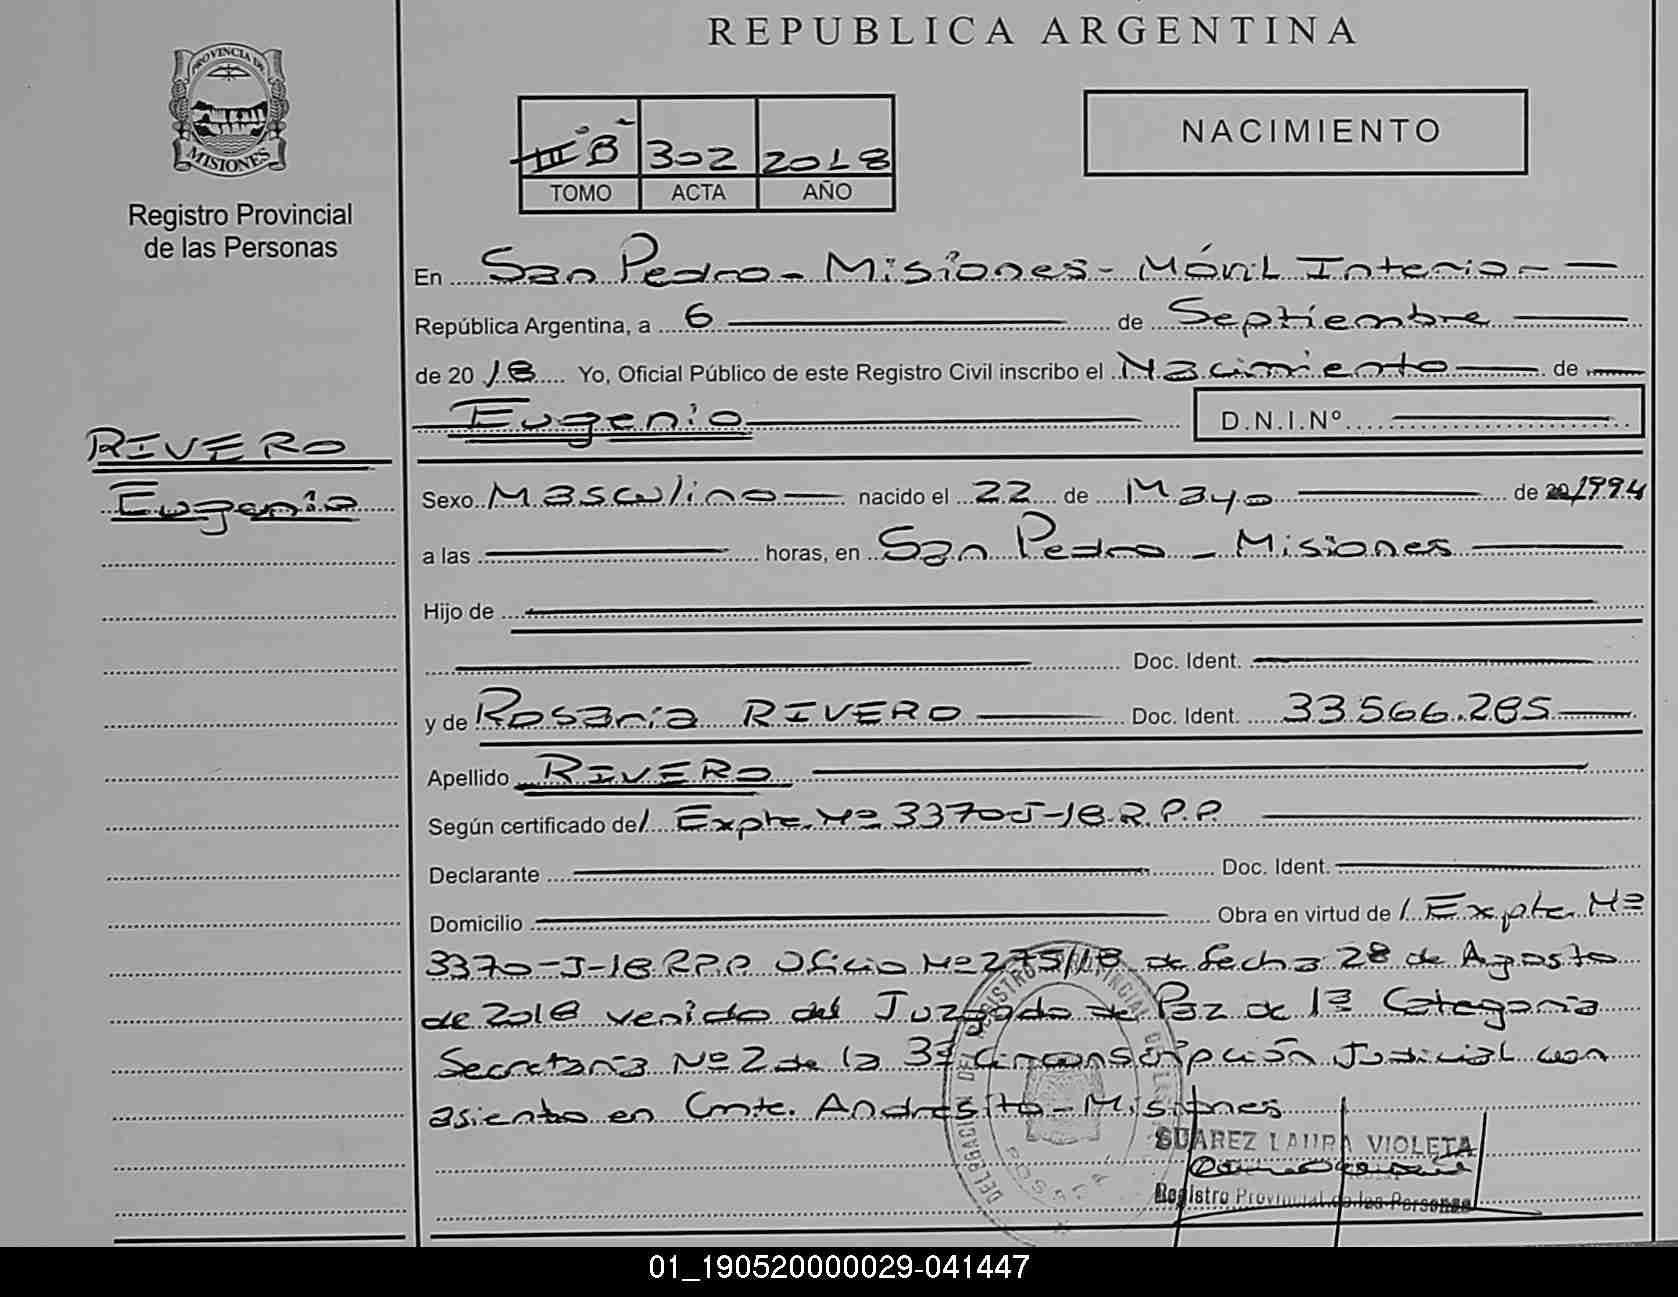 REPUBLICA ARGENTINA
PROVINCIA DE
MISIONES
Registro Provincial
de las Personas
III "B" 302 2018
TOMO ACTA AÑO
NACIMIENTO
En San Pedro - Misiones - Móvil Interio -
República Argentina, a 6 de Septiembre
de 2018 Yo, Oficial Público de este Registro Civil inscribo el Nacimiento de
Eugenio D.N.I.Nº
RIVERO
Eugenio
Sexo Masculino nacido el 22 de Mayo de 20 1994
a las horas, en San Pedro - Misiones
Hijo de
Doc. Ident.
y de Rosaria RIVERO Doc. Ident. 33.566.285
Apellido RIVERO
Según certificado de/ Expte. Nº 3370-J-18-R.P.P.
Declarante Doc. Ident.
Domicilio Obra en virtud de / Expte. Nº
3370-J-18 R.P.P Oficio Nº 275/18 de fecha 28 de Agosto
de 2018 venido del Juzgado de Paz de 1ª Categoria
Secretaria Nº 2 de la 3ª Circunscripción Judicial con
asiento en Cmte. Andresito - Misiones
SUAREZ LAURA VIOLETA
Registro Provincial de las Personas
01_190520000029-041447